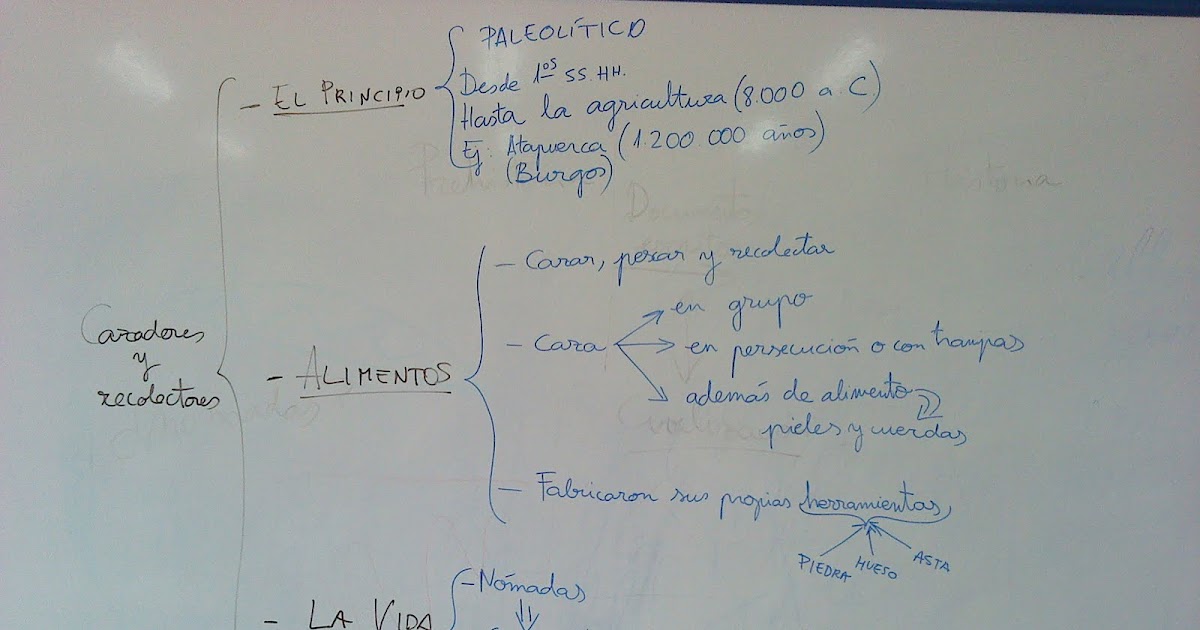 PALEOLÍTICO
- EL PRINCIPIO
Desde 1os SS.HH.
Hasta la agricultura (8.000 a.C)
Ej: Atapuerca (1.200.000 años)
(Burgos)
Cazadores
y
recolectores
- ALIMENTOS
- Cazar, pescar y recolectar
- Caza
en grupo
en persecución o con trampas
además de alimento
pieles y cuerdas
- Fabricaron sus propias herramientas
PIEDRA HUESO ASTA
- LA VIDA
- Nómadas